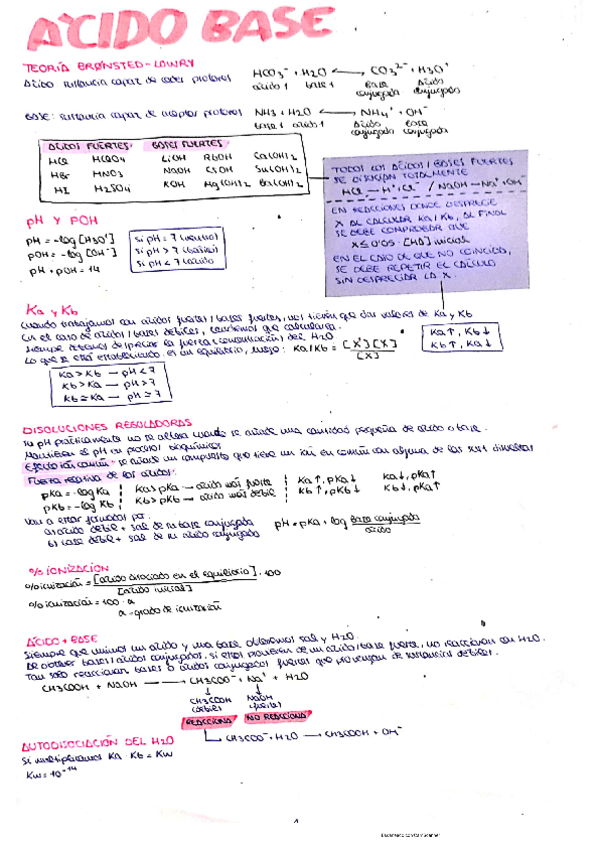 ACIDO BASE
TEORÍA BRØNSTED-LOWRY
Ácido: sustancia capaz de ceder protones HCO3⁻ + H2O ⟷ CO3²⁻ + H3O⁺
ácido 1 base 1 Base conjugada Ácido conjugado
BASE: sustancia capaz de aceptar protones NH3 + H2O ⟷ NH4⁺ + OH⁻
base 1 ácido 1 Ácido conjugado Base conjugada
ÁCIDOS FUERTES: BASES FUERTES:
HCl HClO4 LiOH RbOH Ca(OH)2
HBr HNO3 NaOH CsOH Sr(OH)2
HI H2SO4 KOH Mg(OH)2 Ba(OH)2
TODOS LOS ÁCIDOS/BASES FUERTES
SE DISOCIAN TOTALMENTE
HCl → H⁺ Cl⁻ / NaOH → Na⁺ OH⁻
EN REACCIONES DONDE DESPRECIE
X AL CALCULAR Ka/Kb, AL FINAL
SE DEBE COMPROBAR QUE
X ≤ 0'05 · [HA] inicial
EN EL CASO DE QUE NO COINCIDA,
SE DEBE REPETIR EL CÁLCULO
SIN DESPRECIAR LA X.
pH Y POH
pH = -log [H3O⁺]
pOH = -log [OH⁻]
pH + pOH = 14
si pH = 7 (neutro)
si pH > 7 (básico)
si pH < 7 (ácido)
Ka y Kb
Cuando trabajamos con ácidos fuertes/bases fuertes, nos tienen que dar valores de Ka y Kb
En el caso de ácidos/bases débiles, tendremos que calcularla.
Siempre debemos despreciar la fuerza (concentración) del H2O
Lo que se está estableciendo es un equilibrio, luego: Ka/Kb = [X][X] / [X]
Ka↑, Kb↓
Kb↑, Ka↓
Ka > Kb → pH < 7
Kb > Ka → pH > 7
Kb ≈ Ka → pH ≈ 7
DISOLUCIONES REGULADORAS
Su pH prácticamente no se altera cuando se añade una cantidad pequeña de ácido o base.
Mantienen el pH en procesos bioquímicos
Efecto ión común: se añade un compuesto que tiene un ión en común con alguna de las sust disueltas
Fuerza relativa de los ácidos:
pKa = -log Ka Ka > pKa → ácido más fuerte Ka↑, pKa↓ Ka↓, pKa↑
pKb = -log Kb Kb > pKb → ácido más débil Kb↑, pKb↓ Kb↓, pKa↑
Van a estar formados por:
a) ácido débil + sal de su base conjugada pH = pKa + log Base conjugada / ácido
b) base débil + sal de su ácido conjugado
% IONIZACIÓN
% ionización = [ácido disociado en el equilibrio] / [ácido inicial] · 100
% ionización = 100 · α
α → grado de ionización
ÁCIDO + BASE
Siempre que unimos un ácido y una base, obtenemos sal y H2O.
De obtener bases/ácidos conjugados, si estos provienen de un ácido/base fuerte, no reaccionan con H2O.
Tan solo reaccionan bases o ácidos conjugados fuertes que provengan de sustancias débiles.
CH3COOH + NaOH → CH3COO⁻ + Na⁺ + H2O
CH3COOH (débil) NaOH (fuerte)
REACCIONA NO REACCIONA
CH3COO⁻ + H2O → CH3COOH + OH⁻
AUTODISOCIACIÓN DEL H2O
Si multiplicamos Ka · Kb = Kw
Kw = 10⁻¹⁴